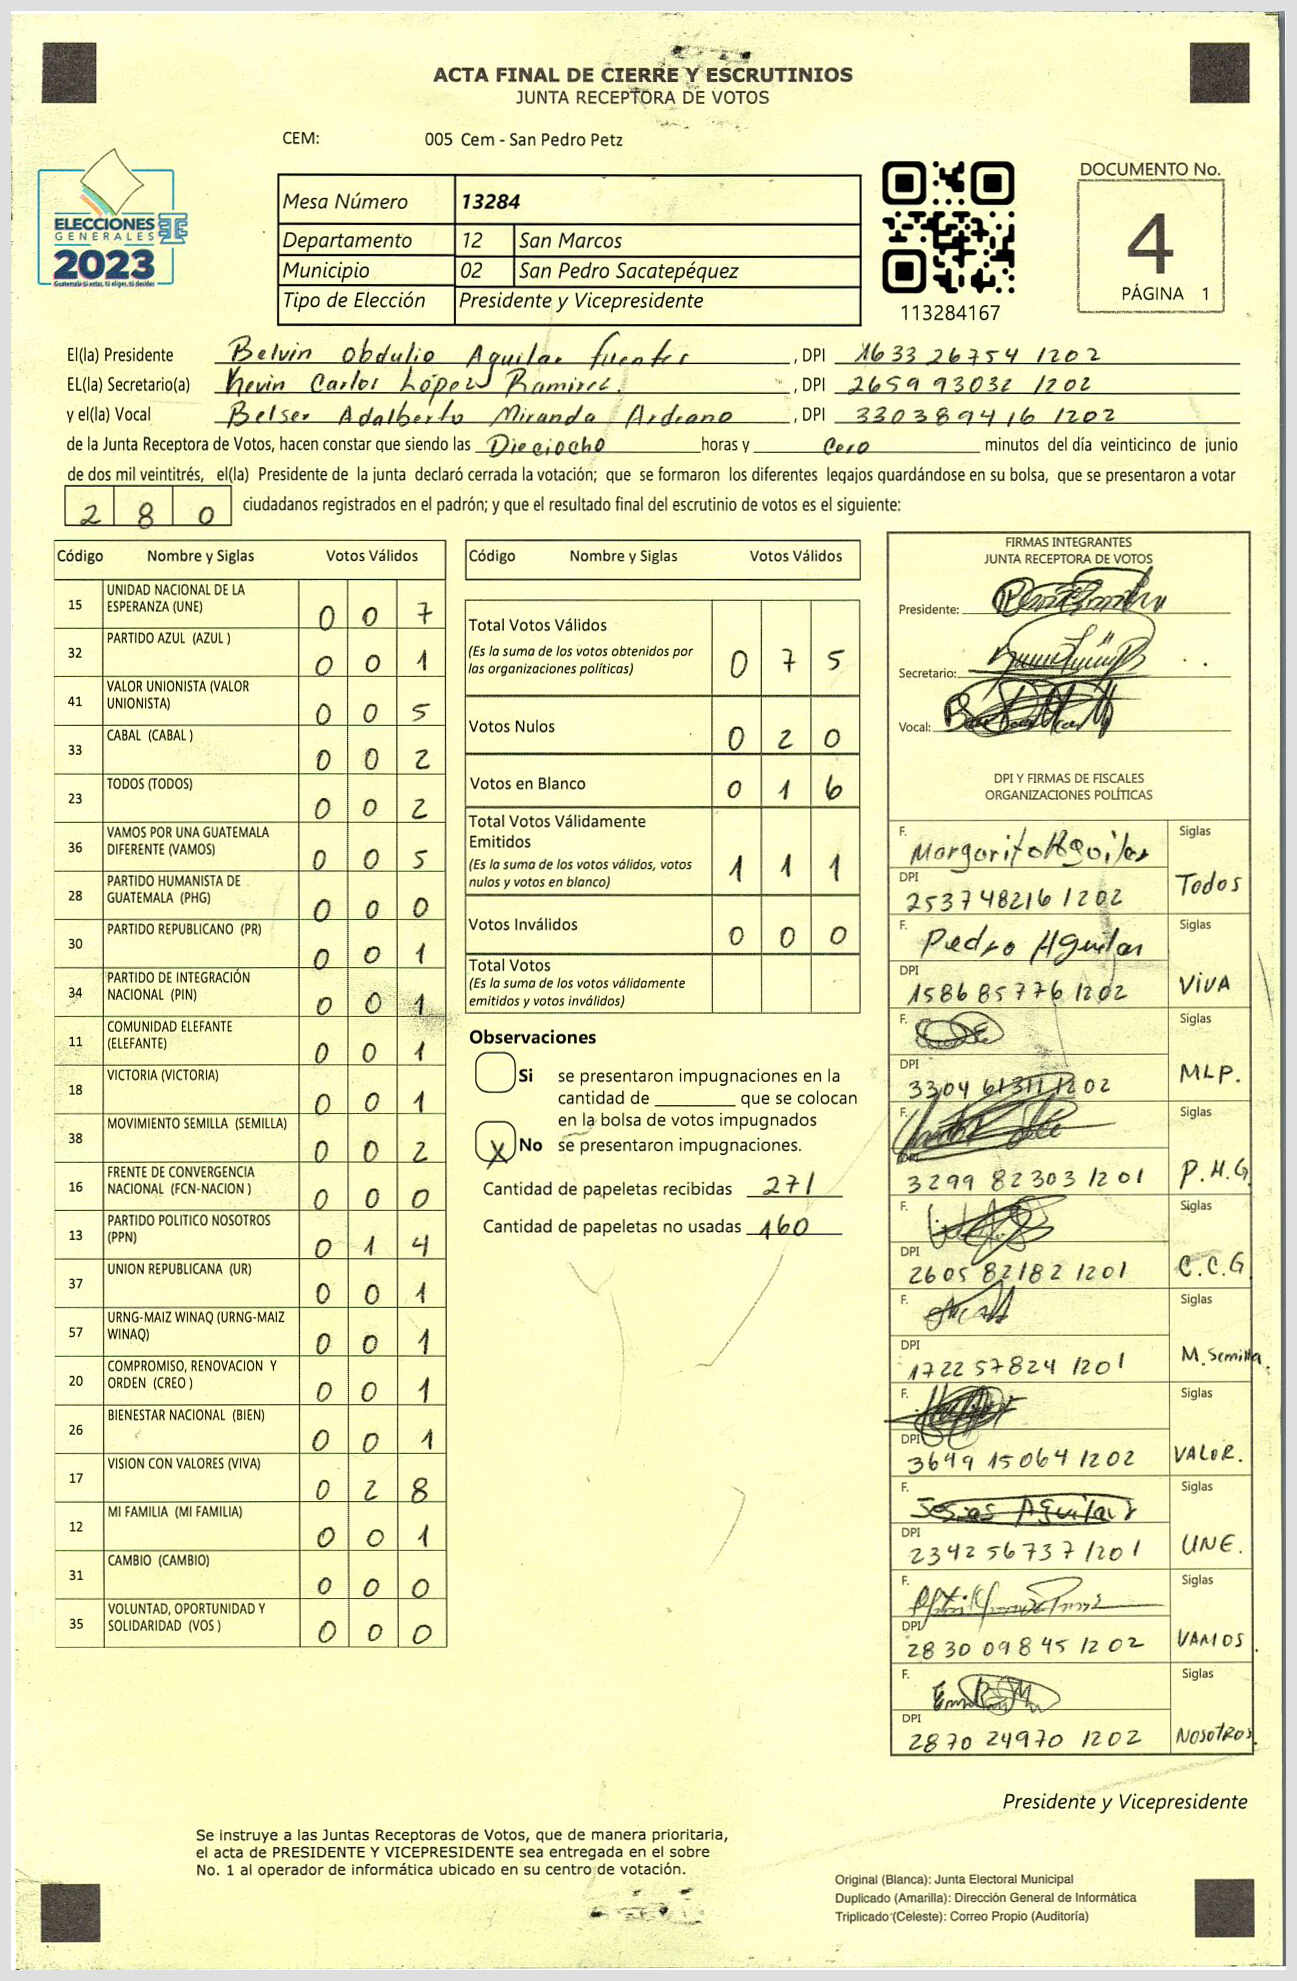 ACTA FINAL DE CIERRE Y ESCRUTINIOS
JUNTA RECEPTORA DE VOTOS
CEM: 005 Cem - San Pedro Petz
ELECCIONES
GENERALES
2023
Guatemala si votas, tú eliges, tú decides
Mesa Número 13284
Departamento 12 San Marcos
Municipio 02 San Pedro Sacatepéquez
Tipo de Elección Presidente y Vicepresidente
113284167
DOCUMENTO No.
4
PÁGINA 1
El(la) Presidente Belvin Obdulio Aguilar fuentes, DPI 1633 26754 1202
EL(la) Secretario(a) Kevin Carlos López Ramirez, DPI 2659 93032 1202
y el(la) Vocal Belser Adalberto Miranda Ardeano, DPI 330389416 1202
de la Junta Receptora de Votos, hacen constar que siendo las Dieciocho horas y Cero minutos del día veinticinco de junio
de dos mil veintitrés, el(la) Presidente de la junta declaró cerrada la votación; que se formaron los diferentes legajos guardándose en su bolsa, que se presentaron a votar
280 ciudadanos registrados en el padrón; y que el resultado final del escrutinio de votos es el siguiente:
Código Nombre y Siglas Votos Válidos
15 UNIDAD NACIONAL DE LA ESPERANZA (UNE) 0 0 7
32 PARTIDO AZUL (AZUL ) 0 0 1
41 VALOR UNIONISTA (VALOR UNIONISTA) 0 0 5
33 CABAL (CABAL ) 0 0 2
23 TODOS (TODOS) 0 0 2
36 VAMOS POR UNA GUATEMALA DIFERENTE (VAMOS) 0 0 5
28 PARTIDO HUMANISTA DE GUATEMALA (PHG) 0 0 0
30 PARTIDO REPUBLICANO (PR) 0 0 1
34 PARTIDO DE INTEGRACIÓN NACIONAL (PIN) 0 0 1
11 COMUNIDAD ELEFANTE (ELEFANTE) 0 0 1
18 VICTORIA (VICTORIA) 0 0 1
38 MOVIMIENTO SEMILLA (SEMILLA) 0 0 2
16 FRENTE DE CONVERGENCIA NACIONAL (FCN-NACION ) 0 0 0
13 PARTIDO POLITICO NOSOTROS (PPN) 0 1 4
37 UNION REPUBLICANA (UR) 0 0 1
57 URNG-MAIZ WINAQ (URNG-MAIZ WINAQ) 0 0 1
20 COMPROMISO, RENOVACION Y ORDEN (CREO ) 0 0 1
26 BIENESTAR NACIONAL (BIEN) 0 0 1
17 VISION CON VALORES (VIVA) 0 2 8
12 MI FAMILIA (MI FAMILIA) 0 0 1
31 CAMBIO (CAMBIO) 0 0 0
35 VOLUNTAD, OPORTUNIDAD Y SOLIDARIDAD (VOS ) 0 0 0
Código Nombre y Siglas Votos Válidos
Total Votos Válidos 0 7 5
(Es la suma de los votos obtenidos por
las organizaciones políticas)
Votos Nulos 0 2 0
Votos en Blanco 0 1 6
Total Votos Válidamente
Emitidos 1 1 1
(Es la suma de los votos válidos, votos
nulos y votos en blanco)
Votos Inválidos 0 0 0
Total Votos
(Es la suma de los votos válidamente
emitidos y votos inválidos)
Observaciones
Si se presentaron impugnaciones en la
cantidad de ________ que se colocan
en la bolsa de votos impugnados
X No se presentaron impugnaciones.
Cantidad de papeletas recibidas 271
Cantidad de papeletas no usadas 160
FIRMAS INTEGRANTES
JUNTA RECEPTORA DE VOTOS
Presidente:
Secretario:
Vocal:
DPI Y FIRMAS DE FISCALES
ORGANIZACIONES POLÍTICAS
F. Margarito Aguilar Siglas
DPI 2537 48216 1202 Todos
F. Pedro Aguilar Siglas
DPI 1586 85776 1202 VIVA
F. Siglas
DPI 3304 61311 1202 MLP.
F. Siglas
DPI 3299 82303 1201 P.H.G.
F. Siglas
DPI 2605 82182 1201 C.C.G
F. Siglas
DPI 1722 57824 1201 M. Semilla.
F. Siglas
DPI 3649 15064 1202 VALOR.
F. Josias Aguilar Siglas
DPI 2342 56737 1201 UNE.
F. Siglas
DPI 2830 09845 1202 VAMOS.
F. Siglas
DPI 2870 24970 1202 NOSOTROS.
Presidente y Vicepresidente
Se instruye a las Juntas Receptoras de Votos, que de manera prioritaria,
el acta de PRESIDENTE Y VICEPRESIDENTE sea entregada en el sobre
No. 1 al operador de informática ubicado en su centro de votación.
Original (Blanca): Junta Electoral Municipal
Duplicado (Amarilla): Dirección General de Informática
Triplicado (Celeste): Correo Propio (Auditoría)